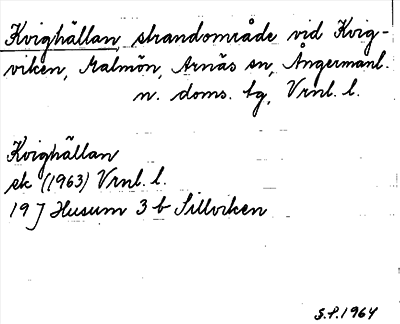 Kvighällan, strandområde vid Kvig-
viken, Malmön, Arnäs sn, Ångermanl.
n. doms. tg, Vrnl. l.
Kvighällan
ek (1963) Vrnl. l.
19 J Husum 3 b Sillviken
S.P. 1964